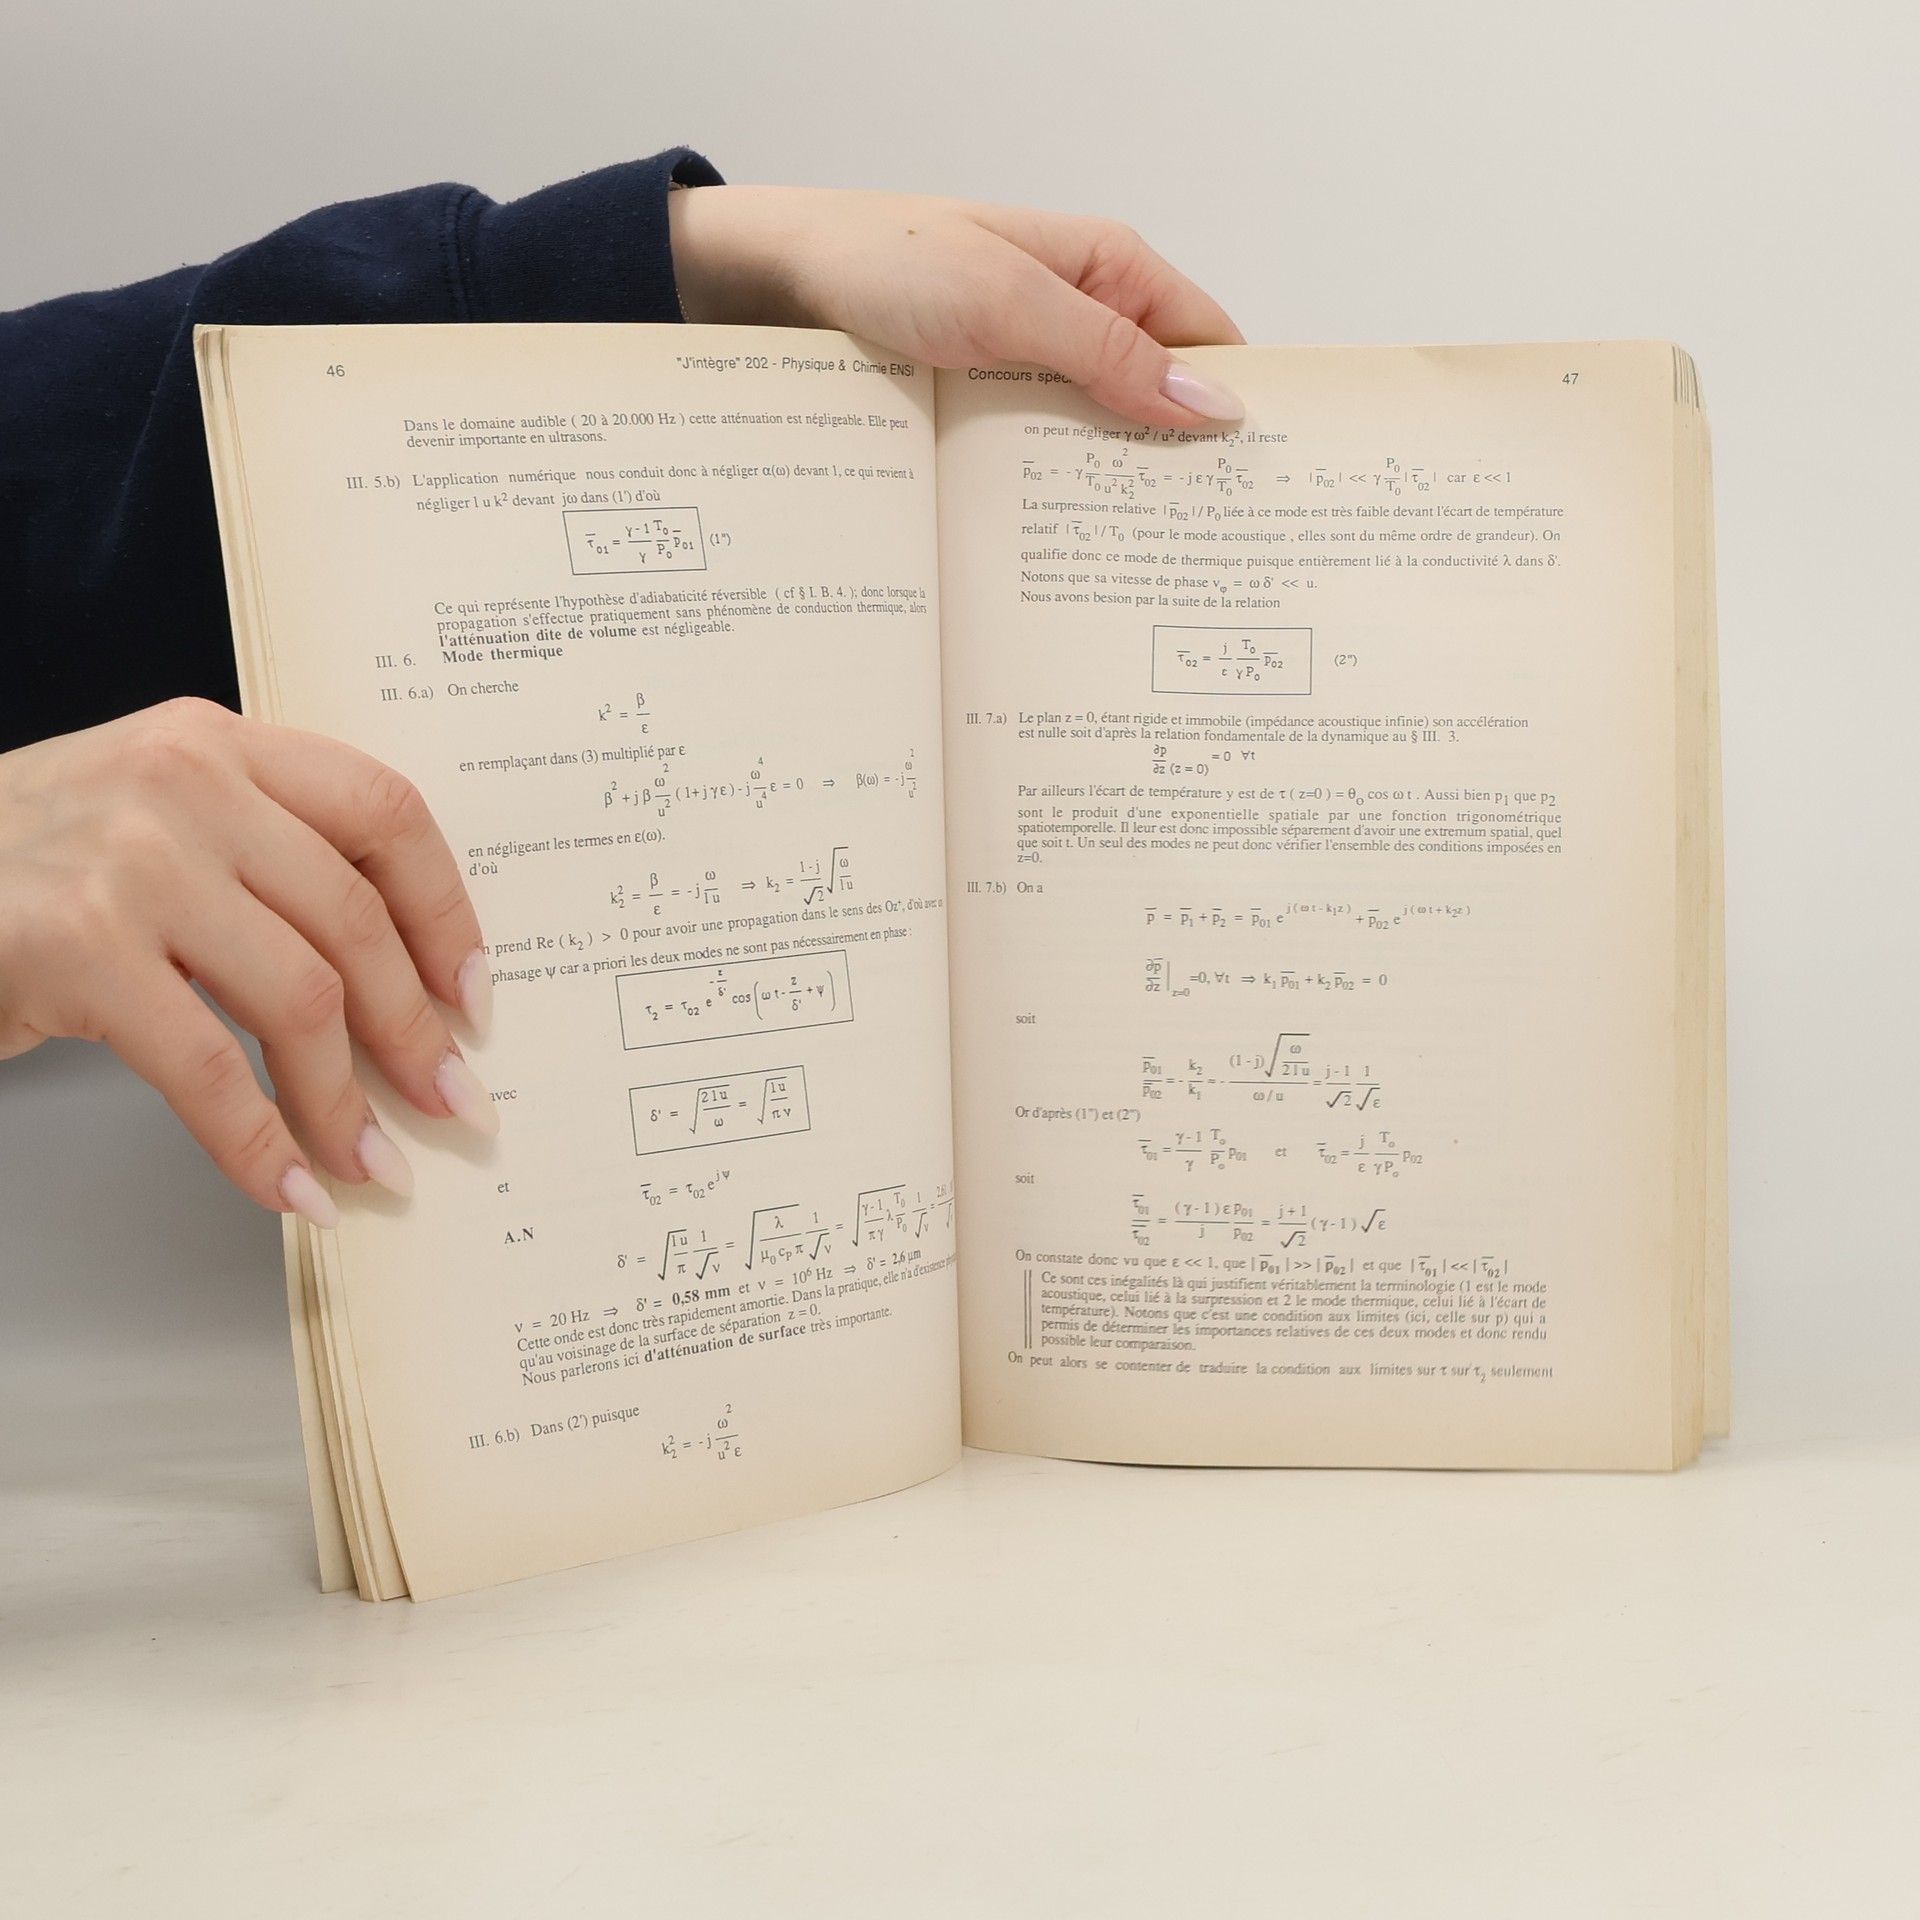 46
"J'intègre" 202 - Physique & Chimie ENSI
Dans le domaine audible ( 20 à 20.000 Hz ) cette atténuation est négligeable. Elle peut
devenir importante en ultrasons.
III. 5.b) L'application numérique nous conduit donc à négliger α(ω) devant 1, ce qui revient à
négliger l u k² devant jω dans (1') d'où
τ̅₀₁ = (γ-1)/γ T₀/P₀ p̅₀₁ (1")
Ce qui représente l'hypothèse d'adiabaticité réversible ( cf § I. B. 4. ); donc lorsque la
propagation s'effectue pratiquement sans phénomène de conduction thermique, alors
l'atténuation dite de volume est négligeable.
III. 6. Mode thermique
III. 6.a) On cherche
k² = β/ε
en remplaçant dans (3) multiplié par ε
β² + j β ω²/u² ( 1+j γ ε ) - j ω⁴/u⁴ ε = 0 ⇒ β(ω) = -j ω²/u²
en négligeant les termes en ε(ω).
d'où
k₂² = β/ε = -j ω/(l u) ⇒ k₂ = (1-j)/√2 √(ω/(l u))
prend Re ( k₂ ) > 0 pour avoir une propagation dans le sens des Oz⁺, d'où avec
phasage ψ car a priori les deux modes ne sont pas nécessairement en phase :
τ₂ = τ₀₂ e^(-z/δ') cos(ω t - z/δ' + ψ)
avec
δ' = √(2 l u/ω) = √(l u/(π ν))
et
τ̅₀₂ = τ₀₂ e^(jψ)
A.N
δ' = √(l u/π) 1/√ν = √(λ/(μ₀ c_P π)) 1/√ν = √((γ-1)/(πγ) λ T₀/P₀) 1/√ν =
ν = 20 Hz ⇒ δ' = 0,58 mm et ν = 10⁶ Hz ⇒ δ' = 2,6 μm
Cette onde est donc très rapidement amortie. Dans la pratique, elle n'a d'existence
qu'au voisinage de la surface de séparation z = 0.
Nous parlerons ici d'atténuation de surface très importante.
III. 6.b) Dans (2') puisque
k₂² = -j ω²/(u² ε)
Concours spéc
47
on peut négliger γ ω² / u² devant k₂², il reste
p̅₀₂ = - γ P₀/T₀ ω²/(u² k₂²) τ̅₀₂ = - j ε γ P₀/T₀ τ̅₀₂ ⇒ | p̅₀₂ | << γ P₀/T₀ | τ̅₀₂ | car ε << 1
La surpression relative | p̅₀₂ | / P₀ liée à ce mode est très faible devant l'écart de température
relatif | τ̅₀₂ | / T₀ (pour le mode acoustique , elles sont du même ordre de grandeur). On
qualifie donc ce mode de thermique puisque entièrement lié à la conductivité λ dans δ'.
Notons que sa vitesse de phase v_φ = ω δ' << u.
Nous avons besion par la suite de la relation
τ̅₀₂ = j/ε T₀/(γ P₀) p̅₀₂ (2")
III. 7.a) Le plan z = 0, étant rigide et immobile (impédance acoustique infinie) son accélération
est nulle soit d'après la relation fondamentale de la dynamique au § III. 3.
∂p/∂z (z = 0) = 0 ∀t
Par ailleurs l'écart de température y est de τ ( z=0 ) = θ₀ cos ω t . Aussi bien p₁ que p₂
sont le produit d'une exponentielle spatiale par une fonction trigonométrique
spatiotemporelle. Il leur est donc impossible séparement d'avoir une extremum spatial, quel
que soit t. Un seul des modes ne peut donc vérifier l'ensemble des conditions imposées en
z=0.
III. 7.b) On a
p̅ = p̅₁ + p̅₂ = p̅₀₁ e^(j ( ω t - k₁z )) + p̅₀₂ e^(j ( ω t + k₂z ))
∂p̅/∂z |z=0 =0, ∀t ⇒ k₁ p̅₀₁ + k₂ p̅₀₂ = 0
soit
p̅₀₁/p̅₀₂ = - k₂/k₁ = - ((1 - j) √(ω/(2 l u)))/(ω / u) = (j - 1)/√2 1/√ε
Or d'après (1") et (2")
τ̅₀₁ = (γ - 1)/γ T₀/P₀ p₀₁ et τ̅₀₂ = j/ε T₀/(γ P₀) p₀₂
soit
τ̅₀₁/τ̅₀₂ = ((γ - 1) ε)/j p₀₁/p₀₂ = (j + 1)/√2 (γ - 1) √ε
On constate donc vu que ε << 1, que | p̅₀₁ | >> | p̅₀₂ | et que | τ̅₀₁ | << | τ̅₀₂ |
Ce sont ces inégalités là qui justifient véritablement la terminologie (1 est le mode
acoustique, celui lié à la surpression et 2 le mode thermique, celui lié à l'écart de
température). Notons que c'est une condition aux limites (ici, celle sur p) qui a
permis de déterminer les importances relatives de ces deux modes et donc rendu
possible leur comparaison.
On peut alors se contenter de traduire la condition aux limites sur τ sur τ₂ seulement